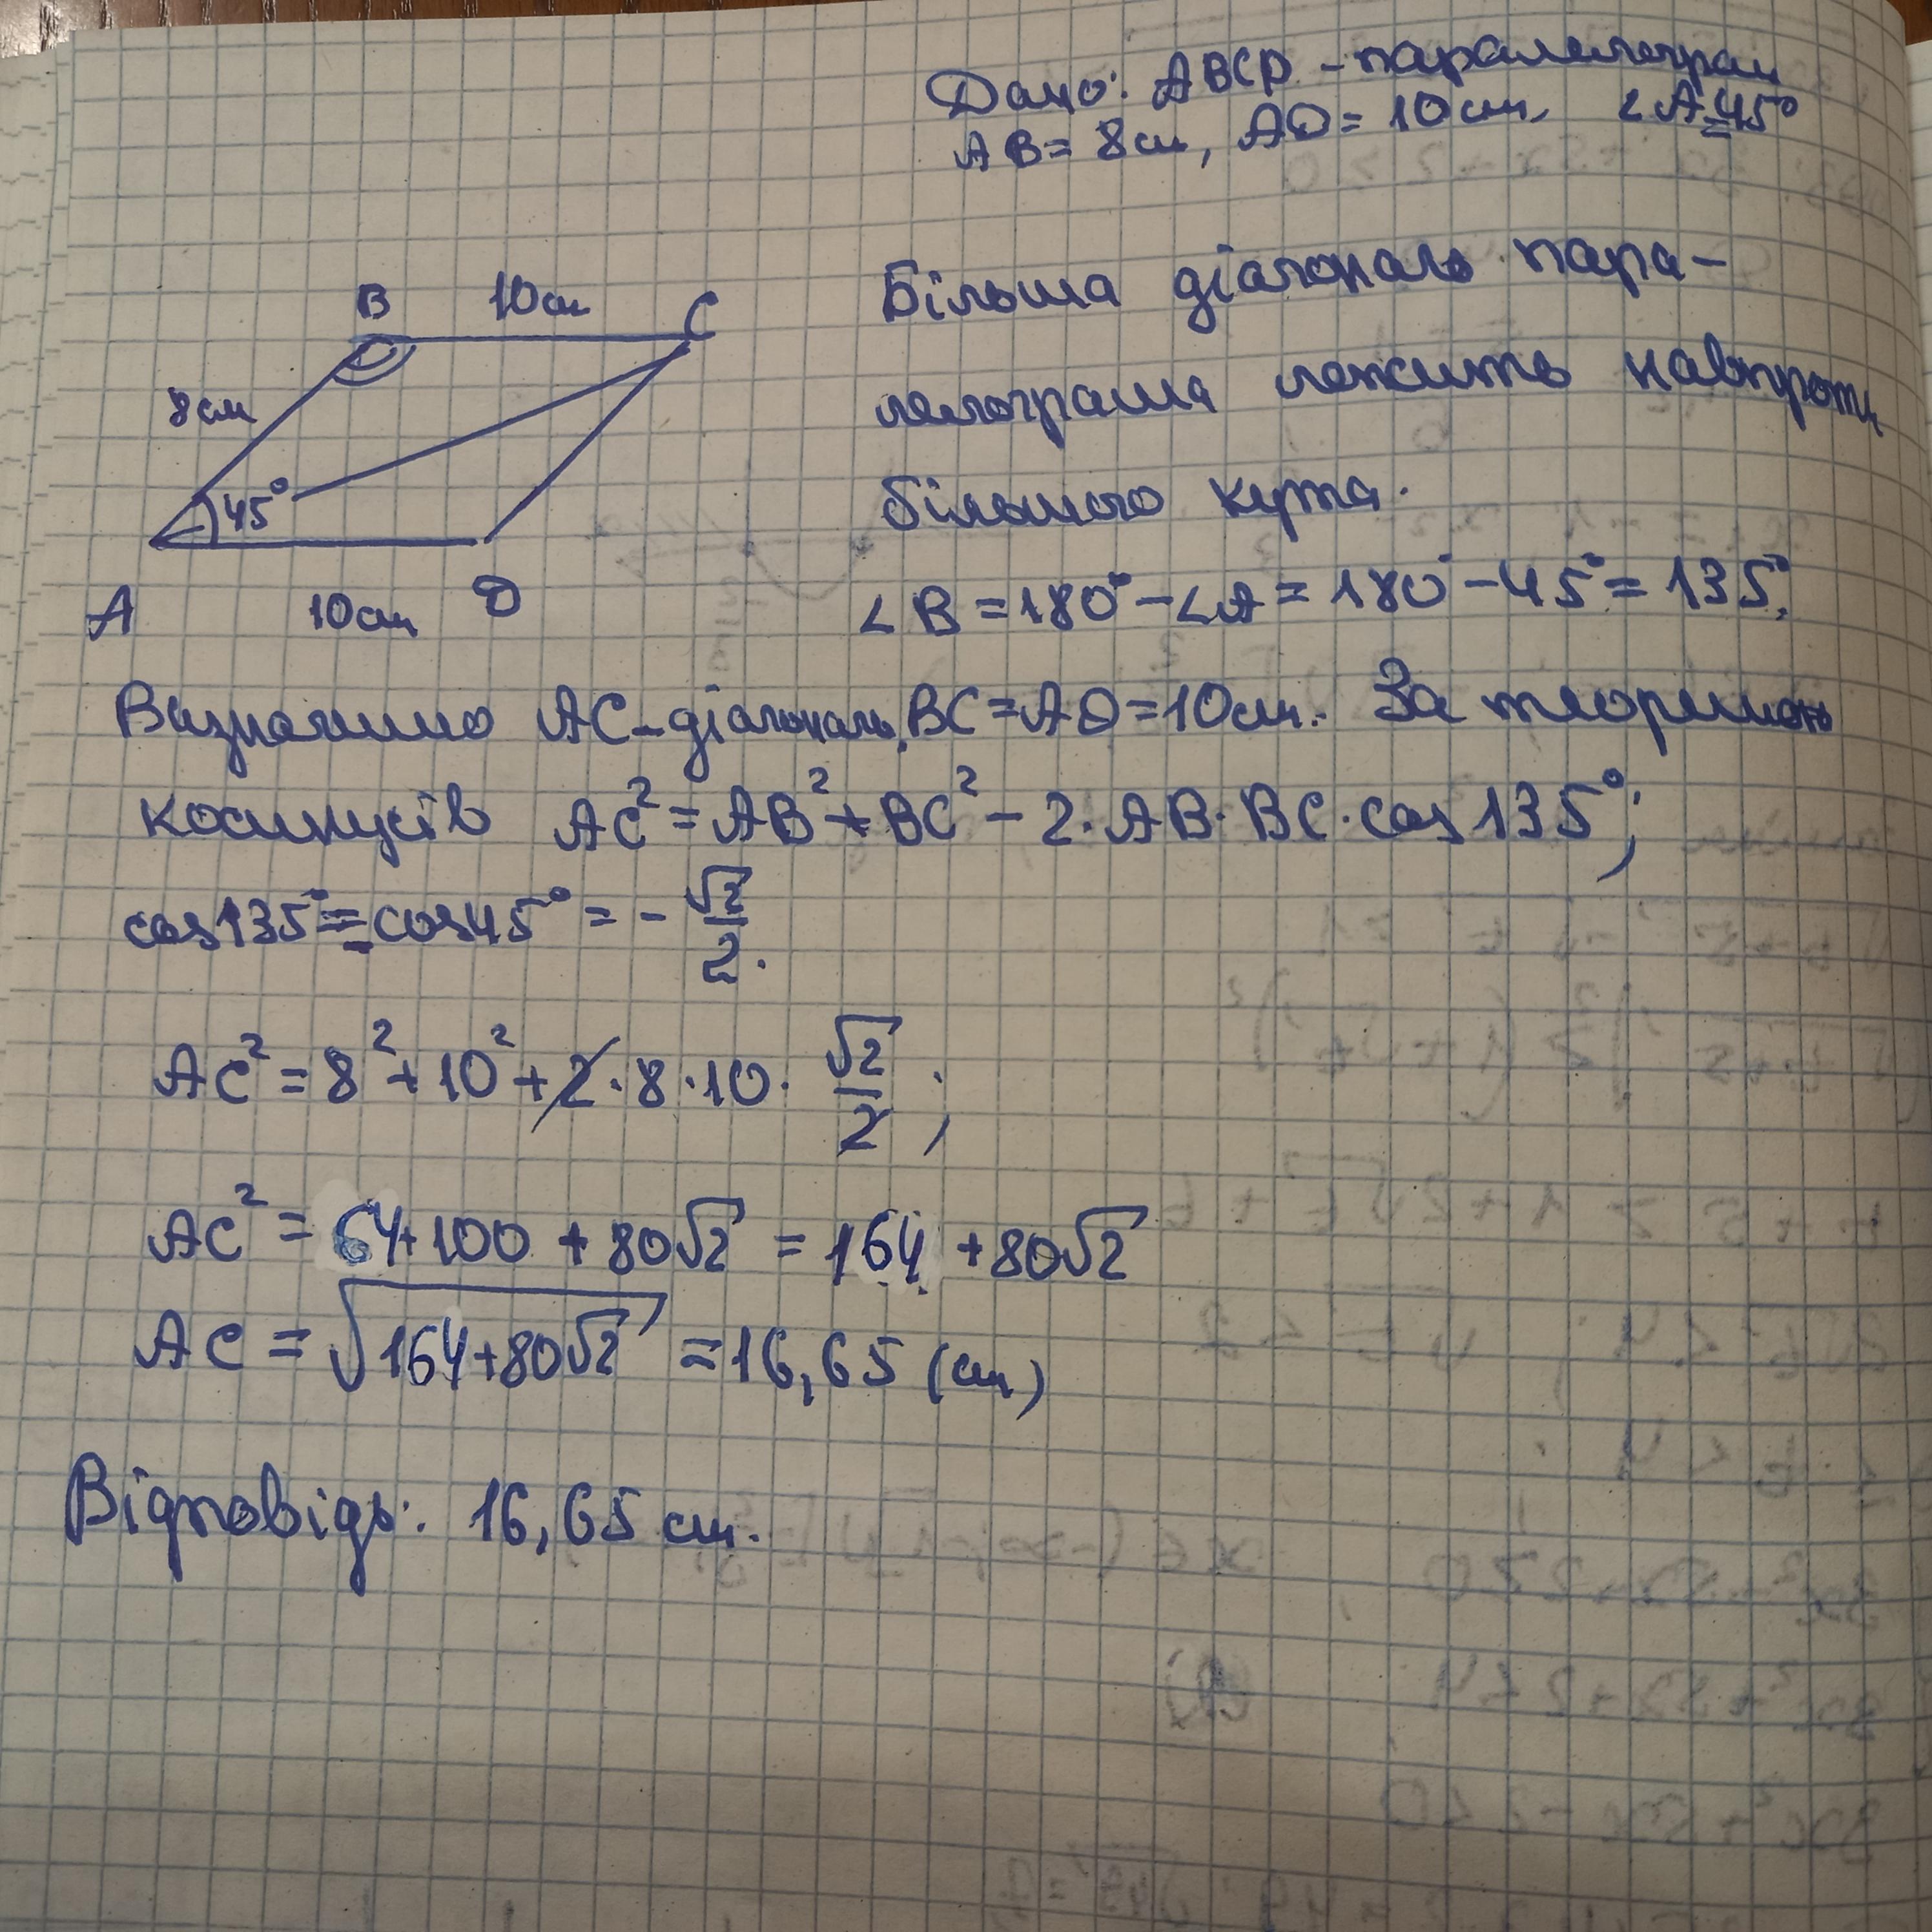 Дано: ABCD - паралелограм
AB = 8 см, AD = 10 см, ∠A = 45°
B 10 см C
8 см
45°
A 10 см D
Більша діагональ пара-
лелограма лежить навпроти
більшого кута.
∠B = 180° - ∠A = 180° - 45° = 135°;
Визначимо AC - діагональ, BC = AD = 10 см. За теоремою
косинусів AC² = AB² + BC² - 2·AB·BC·cos 135°;
cos 135° = - cos 45° = - √2/2.
AC² = 8² + 10² + 2·8·10·√2/2;
AC² = 64 + 100 + 80√2 = 164 + 80√2
AC = √(164 + 80√2) = 16,65 (см)
Відповідь: 16,65 см.